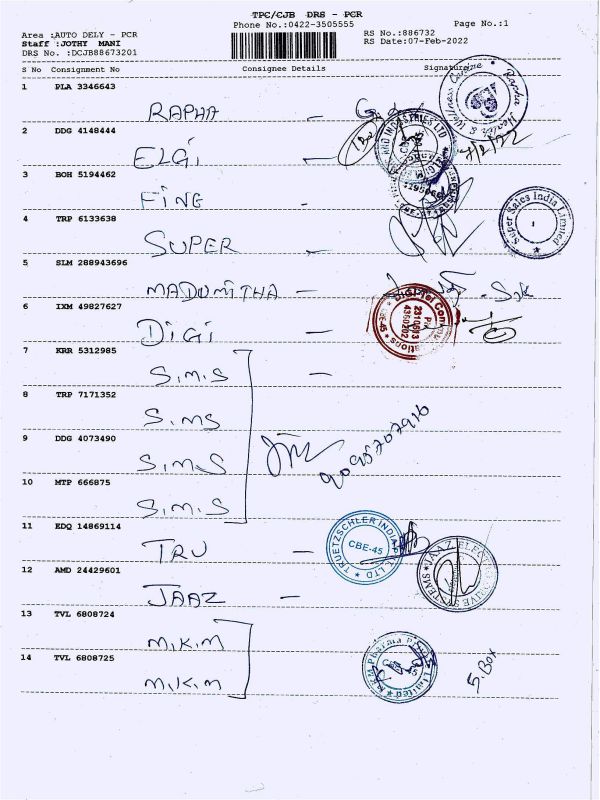 TPC/CJB DRS - PCR
Phone No.:0422-3505555
Page No.:1
Area :AUTO DELY - PCR
Staff :JOTHY MANI
DRS No. :DCJB88673201
RS No.:886732
RS Date:07-Feb-2022
S No Consignment No Consignee Details Signature
1 PLA 3346643
RAPHA -
Rapha Health & Wellness Centre
2 DDG 4148444
ELGi - 7/2/22
3 BOH 5194462
FING -
4 TRP 6133638
SUPER -
Super Sales India Limited
5 SLM 288943696
MADUMITHA -
6 IXM 49827627
DIGI -
7 KRR 5312985
S.M.S -
8 TRP 7171352
S.MS
9 DDG 4073490
S.M.S
10 MTP 666875
S.M.S
11 EDQ 14869114
TRU -
TRUETZSCHLER INDIA P. LTD
CBE-45
12 AMD 24429601
JAAZ -
13 TVL 6808724
M.K.M
14 TVL 6808725
M.K.M
5.Box